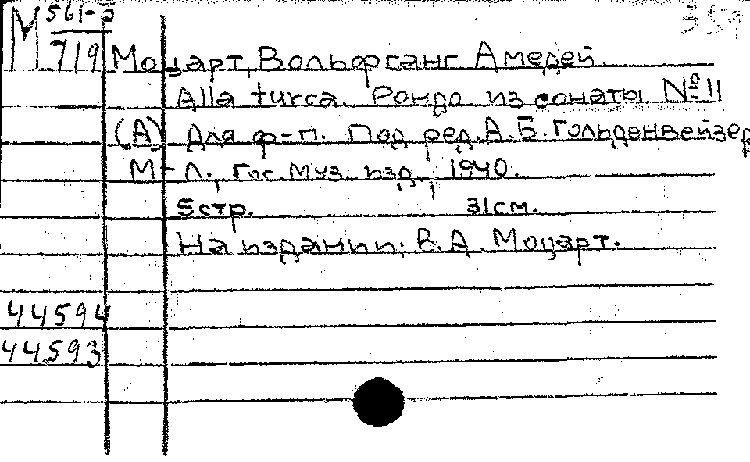 М 561-5
719
359
Моцарт, Вольфганг Амедей.
Alla turca. Рондо из сонаты № 11
(А) Для ф-п. Под ред. А. Б. Гольденвейзер
М-Л., Гос. Муз. изд., 1940.
5 стр. 31 см.
На издании: В. А. Моцарт.
44594
44593